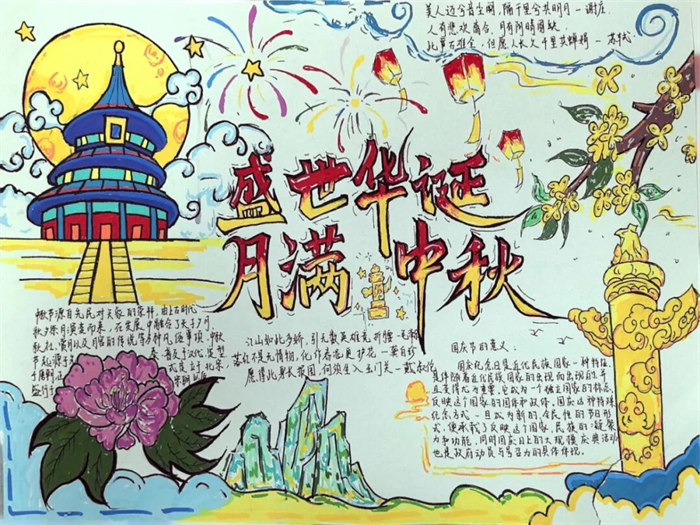 美人迈兮音尘阙,隔千里兮共明月－谢庄
人有悲欢离合,月有阴晴圆缺,
此事古难全。但愿人长久千里共婵娟－苏轼
盛世华诞
月满中秋
江山如此多娇,引无数英雄竞折腰－毛泽东
落红不是无情物,化作春泥更护花－龚自珍
愿得此身长报国,何须生入玉门关－戴叔伦
中秋节源自先民对天象的崇拜,由上古时代
秋夕祭月演变而来,在发展中融合了天子夕月
国庆节的意义:
国庆纪念日是近代民族国家一种特征,
是伴随着近代民族国家的出现而出现的,并
且变得尤为重要,它成为一个独立国家的标志,
反映这个国家的国体和政体,国庆这种特殊
纪念方式一旦成为新的、全民性的节日形
式,便承载了反映这个国家、民族的凝聚
力和功能,同时国庆日上的大规模庆典活动
也是政府动员与号召力的具体体现。